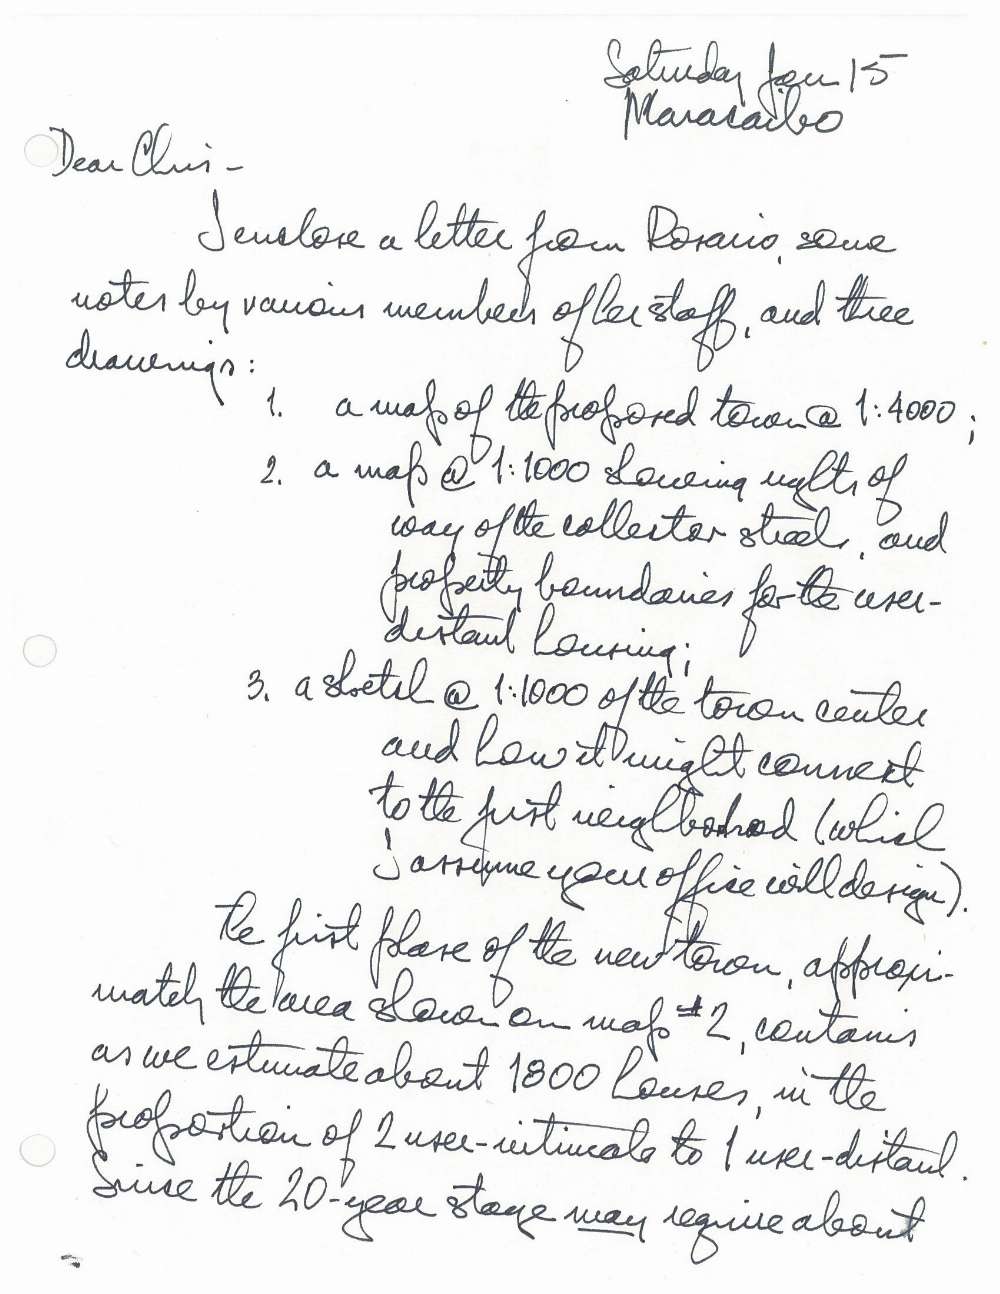 Saturday Jan 15
Maracaibo
Dear Chris -
I enclose a letter from Rosario, some
notes by various members of her staff, and three
drawings:
1. a map of the proposed town @ 1:4000;
2. a map @ 1:1000 showing rights of
way of the collector streets, and
property boundaries for the user-
distant housing;
3. a sketch @ 1:1000 of the town center
and how it might connect
to the first neighborhood (which
I assume your office will design).
The first phase of the new town, approxi-
mately the area shown on map #2, contains
as we estimate about 1800 houses, in the
proportion of 2 user-intimate to 1 user-distant.
Since the 20-year stage may require about